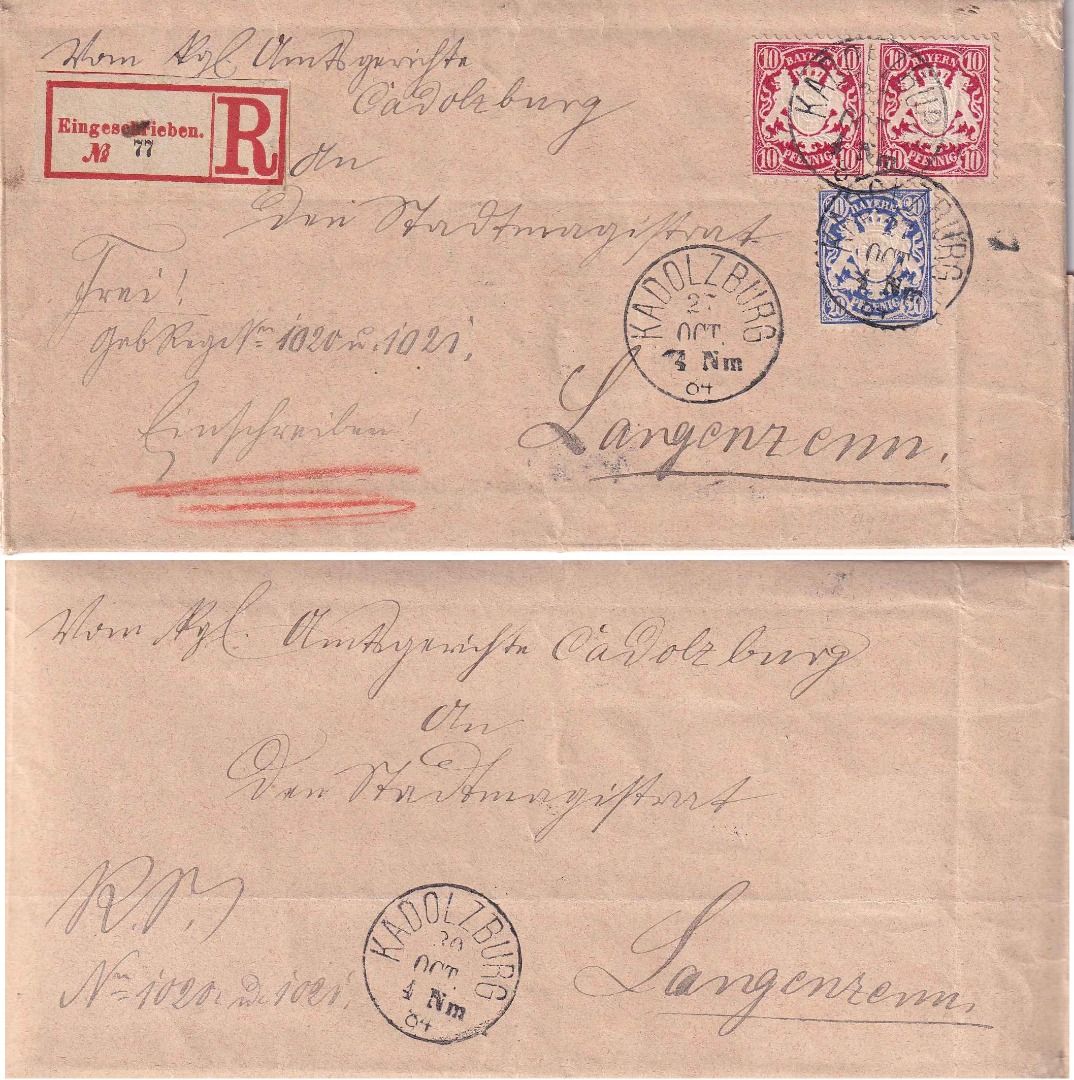 Vom kgl. Amtsgerichte
Cadolzburg
Eingeschrieben.
№ 77
R
An
den Stadtmagistrat
Frei!
Geb Regs Nrn 1020 u. 1021.
Einschreiben!
Langenzenn.
10 BAYERN 10
10 PFENNIG 10
10 BAYERN 10
10 PFENNIG 10
20 BAYERN 20
20 PFENNIG 20
KADOLZBURG
OCT.
4 Nm
KADOLZBURG
27
OCT.
4 Nm
84
Vom kgl. Amtsgerichte Cadolzburg
An
den Stadtmagistrat
R.S.
Nrn 1020. u. 1021.
KADOLZBURG
30
OCT.
4 Nm
84
Langenzenn.